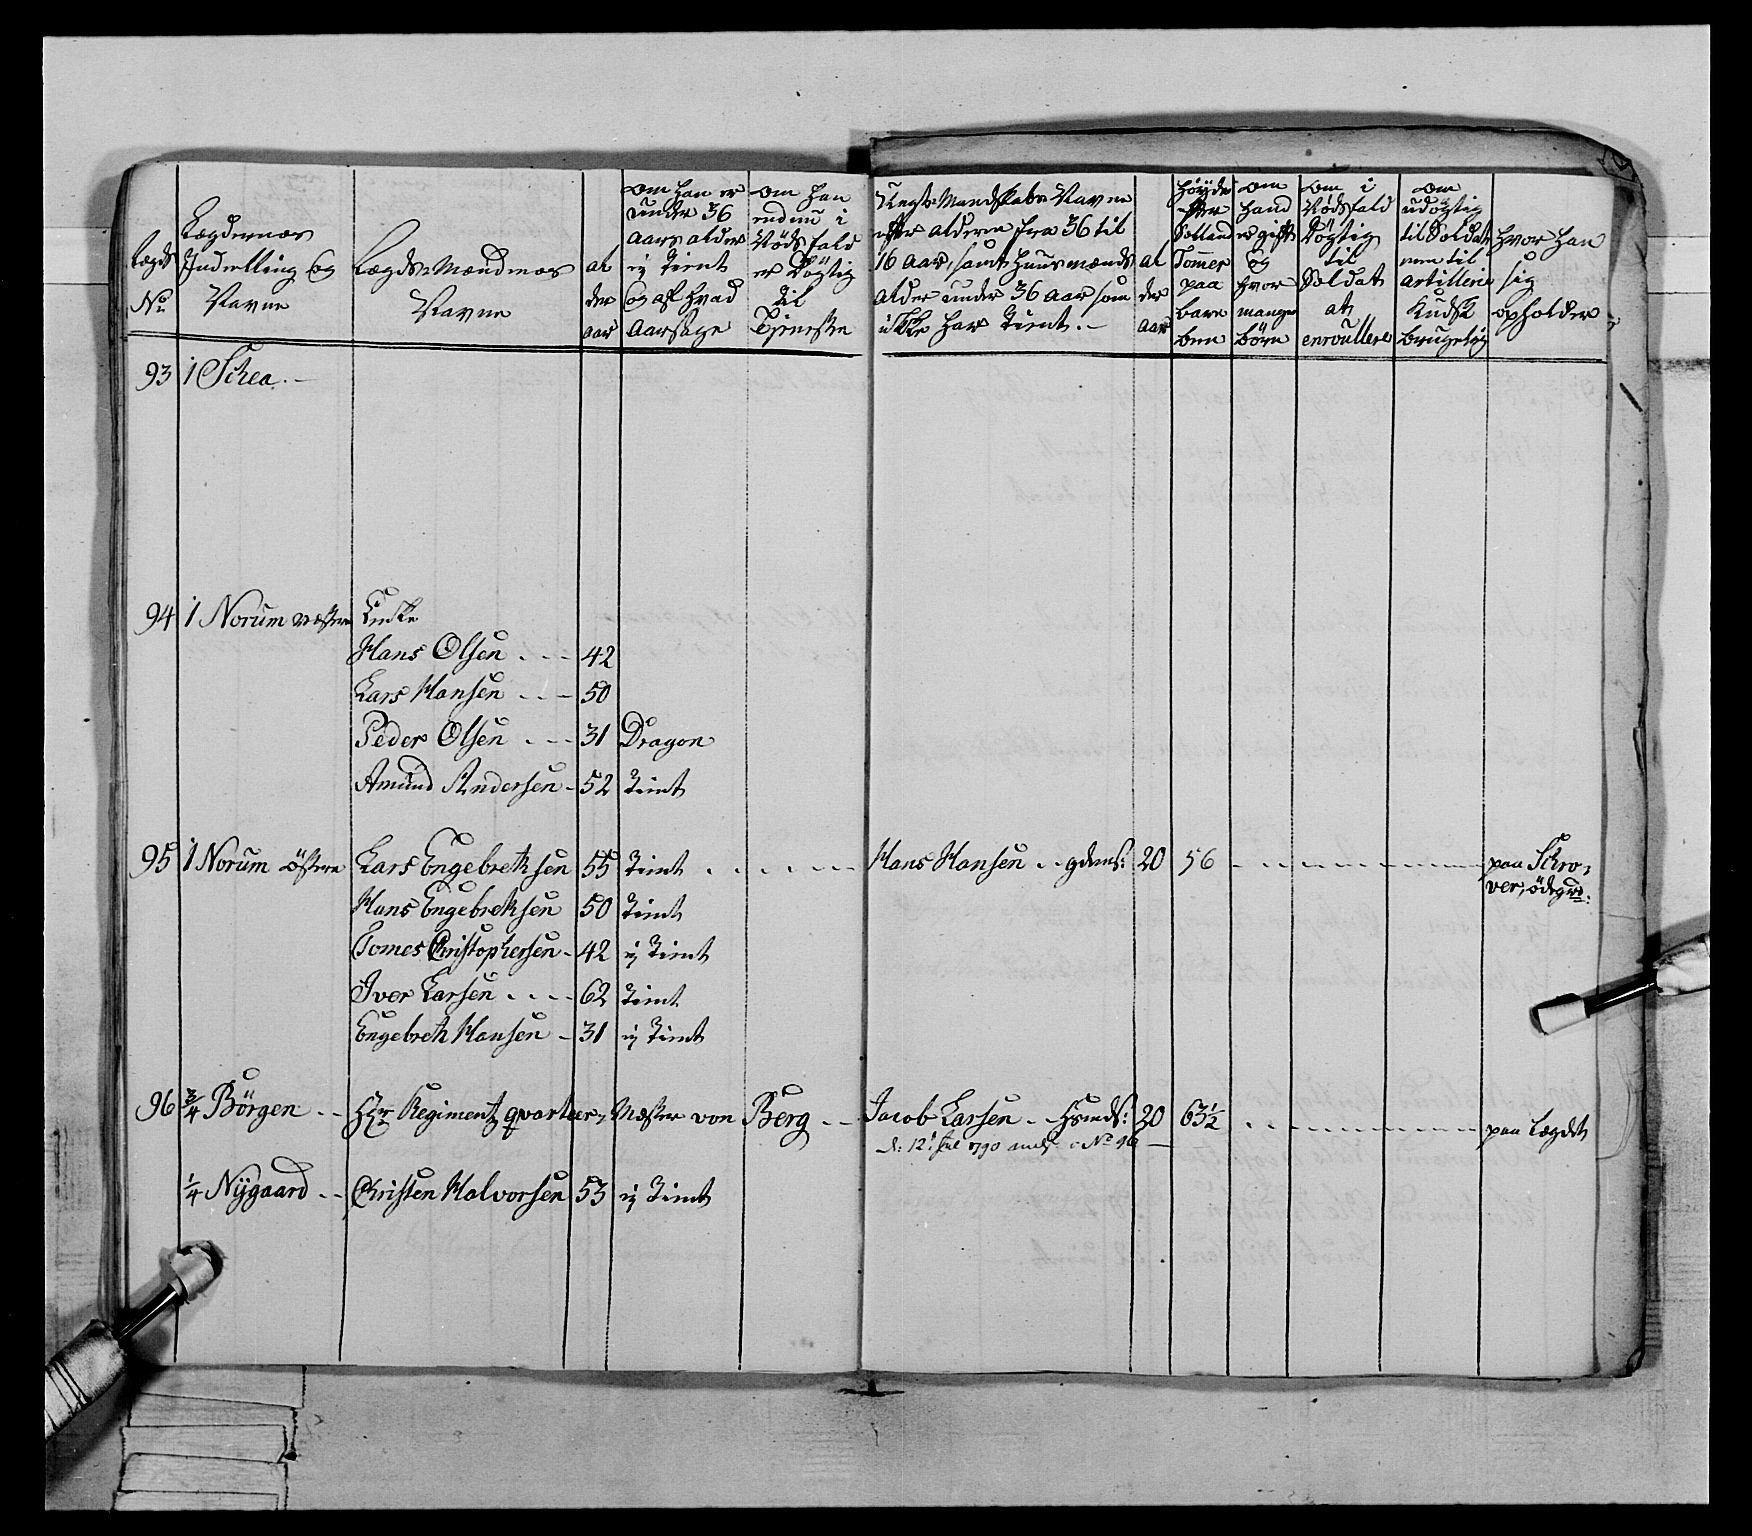 Lægds No
Lægdernes Inddelling og Navne
Lægds-Mændenes Navne
al der aar
om han er under 36 aars alder ej Tient og af hvad aarsage
om han endnu i Nödsfald er Dögtig til Tjeneste
Unge-Mandskabs Navne efter alderen fra 36 til 16 aar, samt Huusmænds alder under 36 aar som ikke har Tient.
al der aar
höyde efter Sælland Tommer paa bare been
om hand er gift og hvor mange börn
om i Nödsfald Dögtig til Soldat at enroullere
om udögtig til Soldat om til artillerie Kudsk brugelig
hvor han sig opholder
93 1 Schea. –
94 1 Norum Vestre Enke
Hans Olsen . . – 42
Lars Hansen . . – 50
Peder Olsen . . – 31 Dragon
Amund Andersen – 52 Tient
95 1 Norum östere Lars Engebrethsen 55 Tient . . . . . Hans Hansen . . gdms: 20 56 – . . . . . paa Schro-
ver, ödegrd:
Hans Engebrethsen 50 Tient
Tomes Christophersen – 42 ej Tient
Iver Larsen . . . – 62 Tient
Engebreth Hansen – 31 ej Tient
96 3/4 Börgen . . Hr Regiment quarteer, Mester von Berg . . Jacob Larsen . . Hsmds: 20 63 1/2 . . . . . . paa Lægdet
d: 12t Jul 1790 No 96 –
1/4 Nÿgaard . . Christen Halvorsen 53 ej Tient